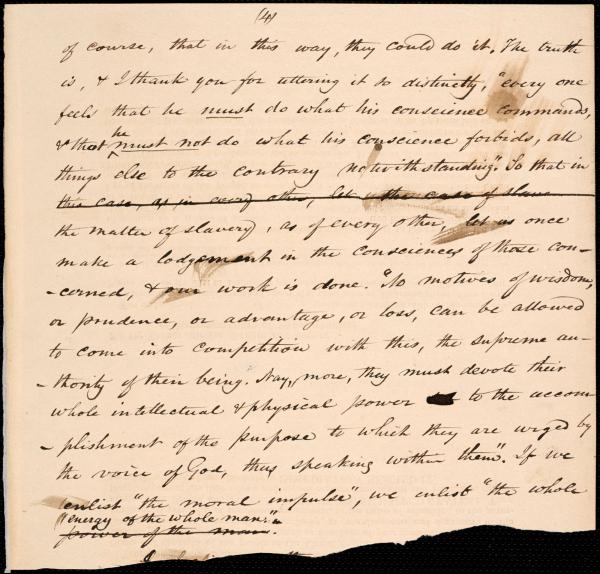 (4)
of course, that in this way, they could do it. The truth
is, & I thank you for uttering it so distinctly, "every one
feels that he must do what his conscience commands,
& that he must not do what his conscience forbids, all
things else to the contrary notwithstanding". So that in
this case, as in every other, let the case of slave
the matter of slavery, as of every other, let us once
make a lodgement in the consciences of those con-
-cerned, & our work is done. "No motives of wisdom,
or prudence, or advantage, or loss, can be allowed
to come into competition with this, the supreme au-
-thority of their being. Nay, more, they must devote their
whole intellectual & physical power to the accom
-plishment of the purpose to which they are urged by
the voice of God, thus speaking within them". If we
enlist "the moral impulse", we enlist "the whole
"energy of the whole man."
power of the man.